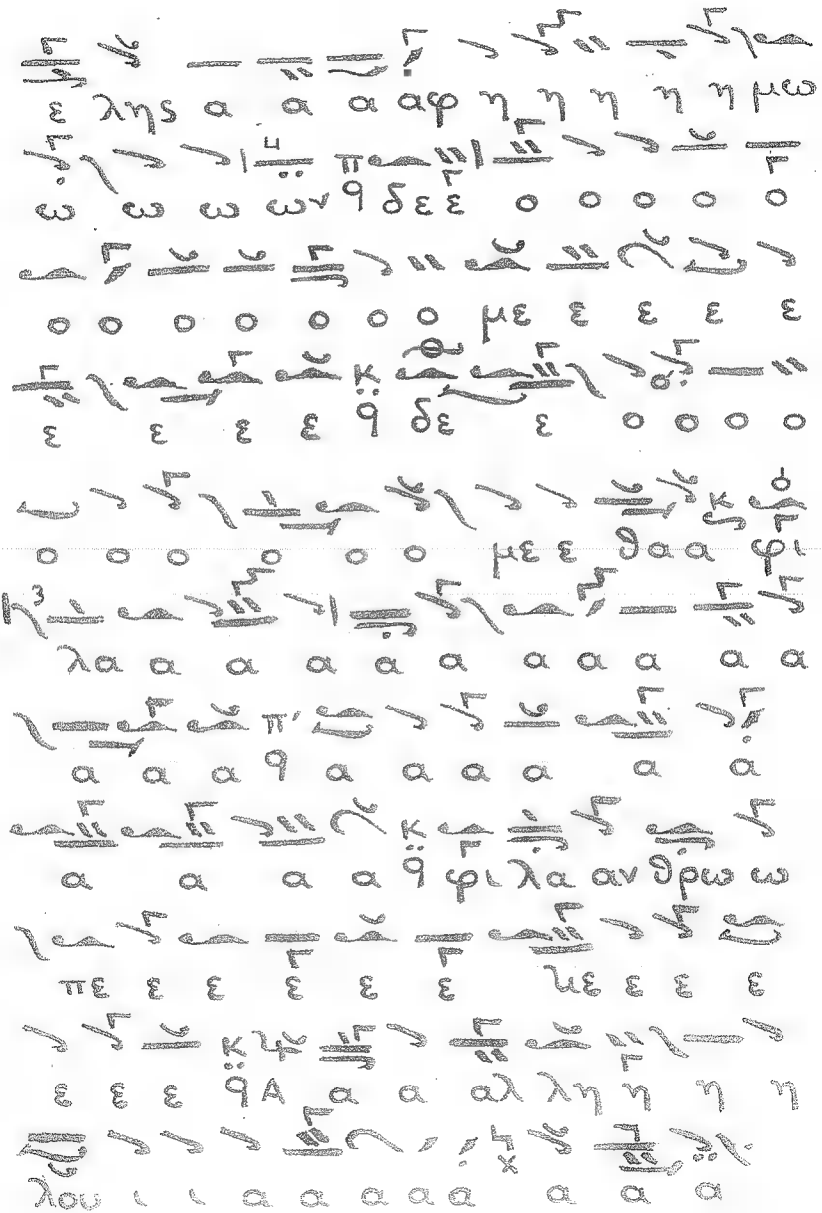 ε λης α α α αφ η η η η η μω
ω ω ω ων δε ε ο ο ο ο ο
ο ο ο ο ο ο ο με ε ε ε ε
ε ε ε ε δε ε ο ο ο ο
ο ο ο ο ο ο με ε θα α φι
λα α α α α α α α α α α
α α α α α α α α α
α α α α φι λα αν θρω ω
πε ε ε ε ε ε κε ε ε ε
ε ε ε Α α α αλ λη η η η
λου ι ι α α α α α α α α